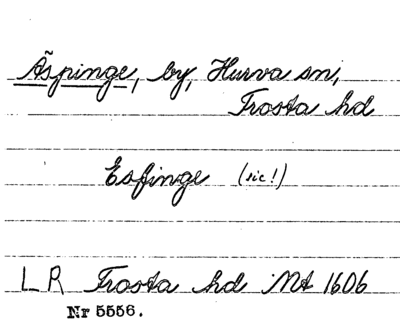 Äspinge, by, Hurva sn,
Frosta hd
Esfinge (sic!)
LR Frosta hd Mt 1606
Nr 5556.